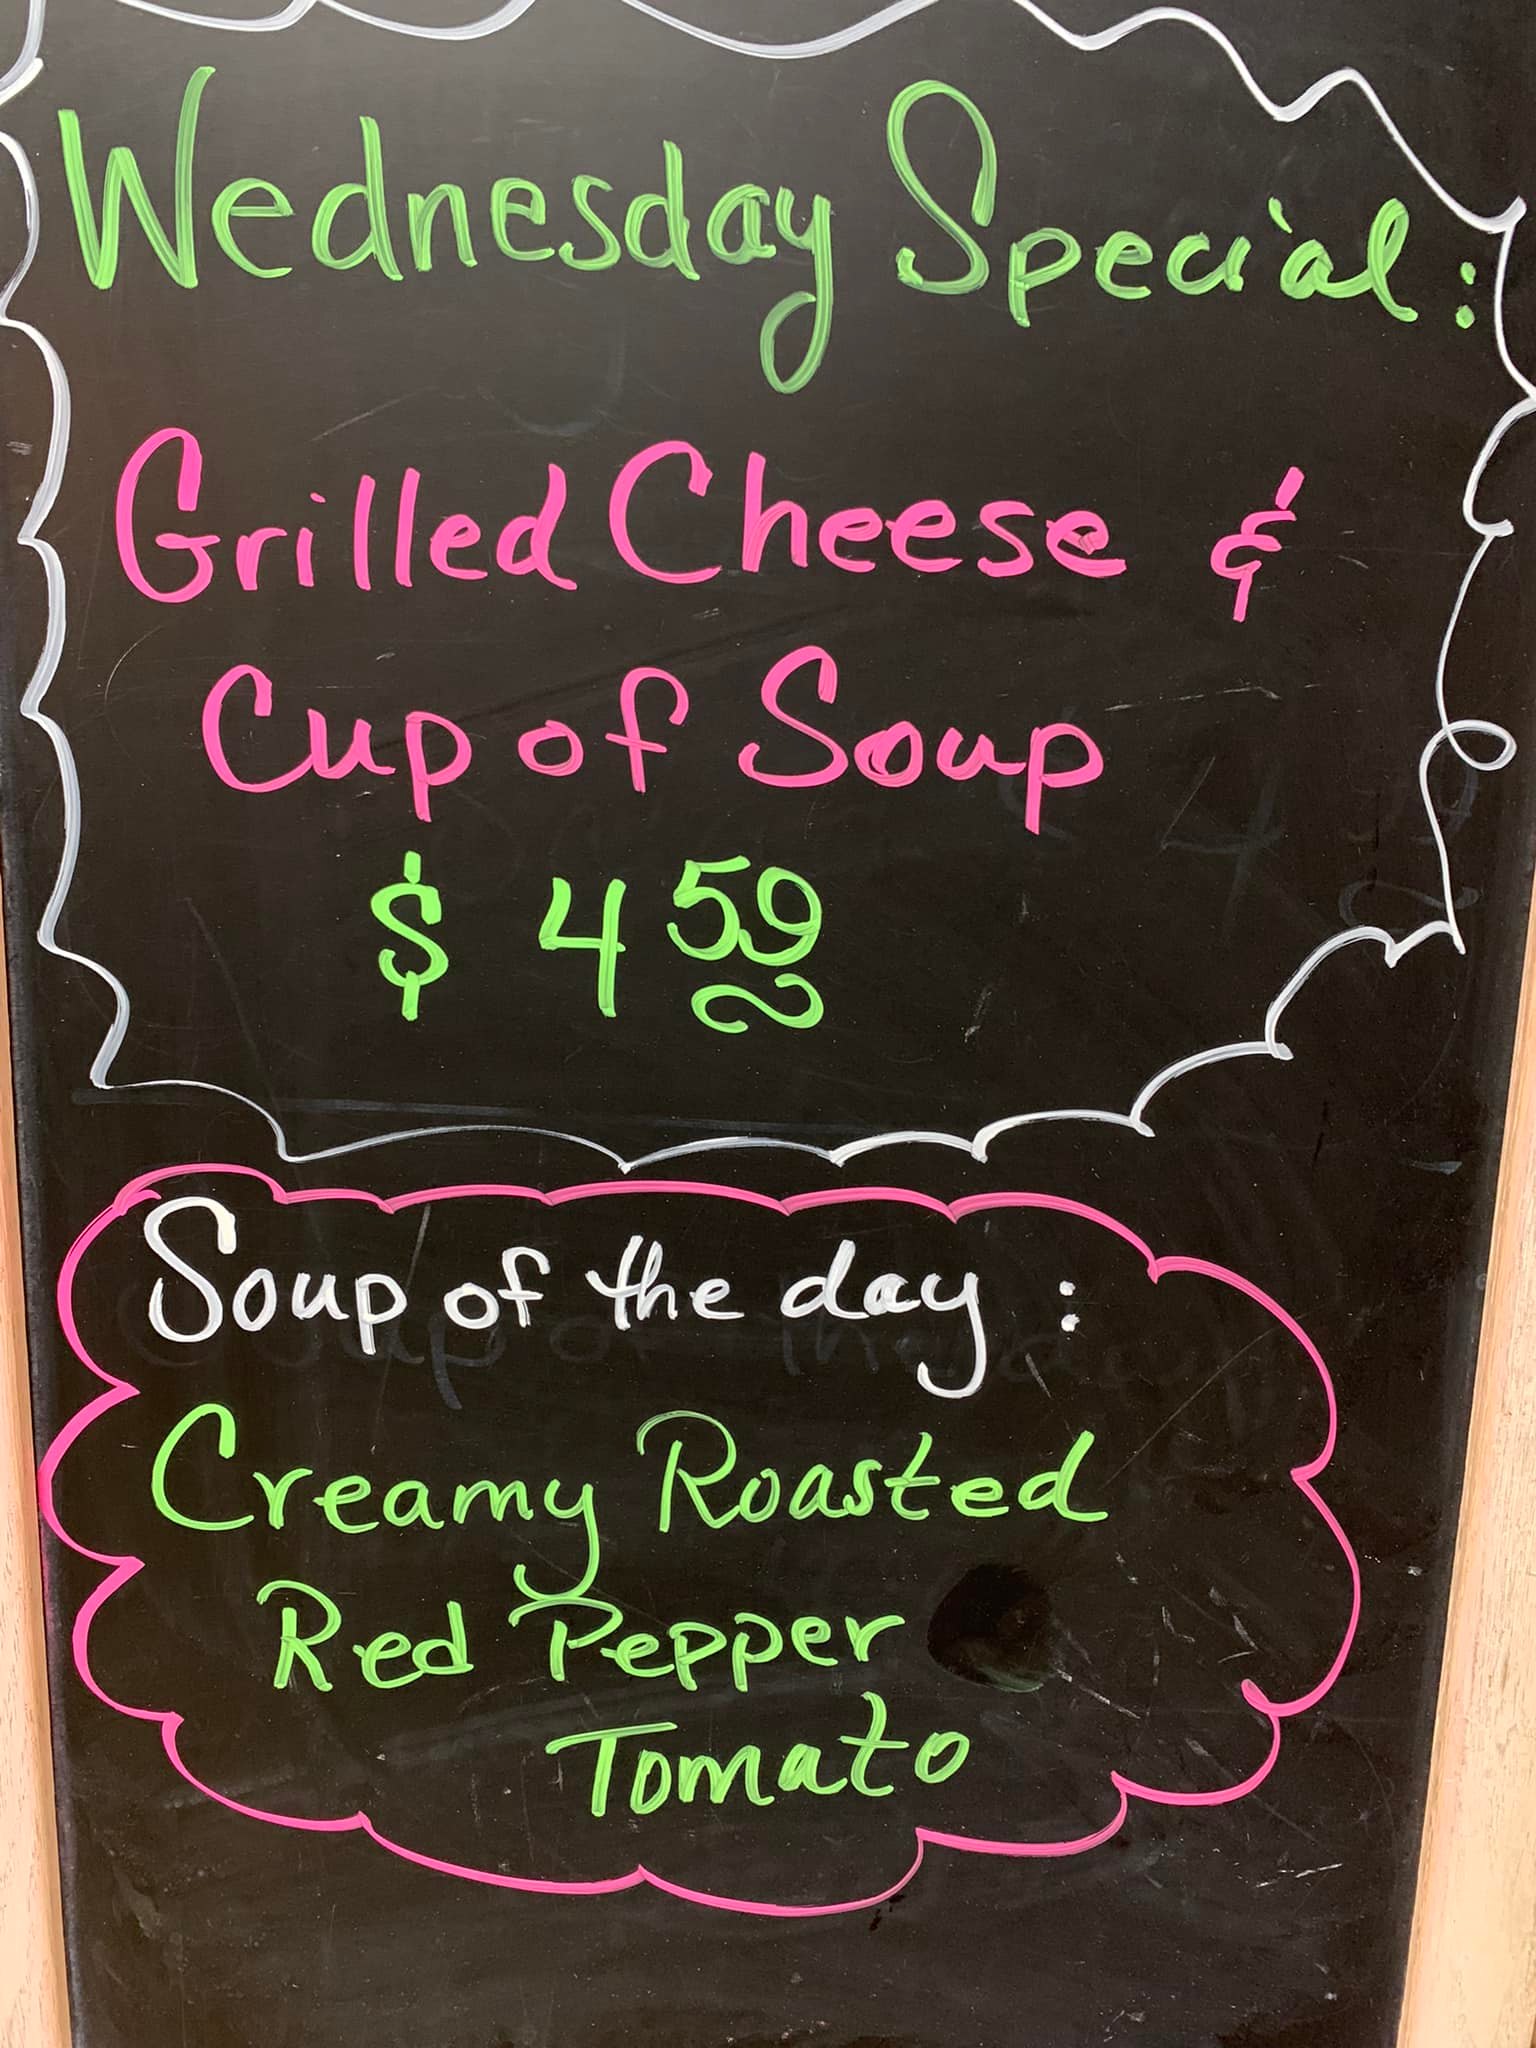 Wednesday Special:
Grilled Cheese &
Cup of Soup
$ 4 59
Soup of the day:
Creamy Roasted
Red Pepper
Tomato